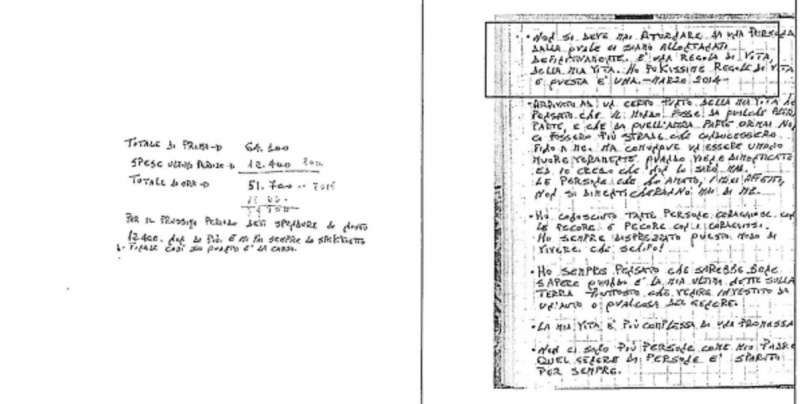 TOTALE DI PRIMA→ 64.100
SPESE ULTIMO PERIODO→ 12.400
TOTALE DI ORA→ 51.700
PER IL PROSSIMO PERIODO DEVI SPENDERE DI NUOVO
12.400. NON DI PIÙ. E MI FAI SEMPRE LO SPECCHIETTO
FINALE COSÌ SO QUANTO È LA CASSA.
• NON SI DEVE MAI RITORNARE DA UNA PERSONA
DALLA QUALE CI SIAMO ALLONTANATI
DEFINITIVAMENTE. E' UNA REGOLA DI VITA,
DELLA MIA VITA. HO POCHISSIME REGOLE DI VITA
E QUESTA E' UNA. - MARZO 2014 -
• ARRIVATO AD UN CERTO PUNTO DELLA MIA VITA HO
PENSATO CHE IL MONDO FOSSE DA QUALCHE ALTRA
PARTE, E CHE DA QUELL'ALTRA PARTE ORMAI NON
CI FOSSERO PIÙ STRADE CHE CONDUCESSERO
FINO A ME. MA COMUNQUE UN ESSERE UMANO
MUORE VERAMENTE QUANDO VIENE DIMENTICATO
ED IO CREDO CHE NON LO SARÒ MAI.
LE PERSONE CHE HO AMATO, I MIEI AFFETTI,
NON SI DIMENTICHERANNO MAI DI ME.
• HO CONOSCIUTO TANTE PERSONE CORAGGIOSE CON
LE PECORE E PECORE CON I CORAGGIOSI.
HO SEMPRE DISPREZZATO QUESTO MODO DI
VIVERE. CHE SCHIFO!
• HO SEMPRE PENSATO CHE SAREBBE BENE
SAPERE QUANDO E' LA MIA ULTIMA NOTTE SULLA
TERRA PIUTTOSTO CHE VENIRE INVESTITO DA
UN'AUTO O QUALCOSA DEL GENERE.
• LA MIA VITA E' PIÙ COMPLESSA DI UNA PROMESSA
• NON CI SONO PIÙ PERSONE COME MIO PADRE
QUEL GENERE DI PERSONE E' SPARITO
PER SEMPRE.